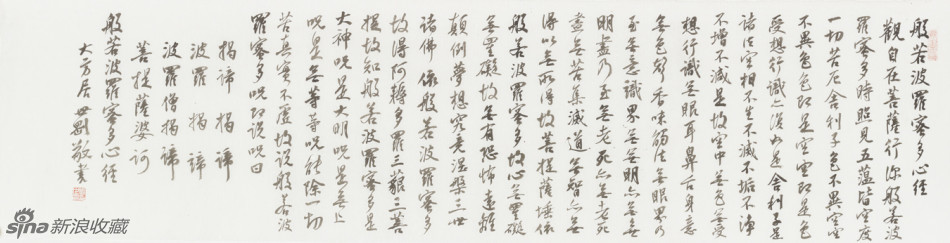 般若波羅蜜多心經
觀自在菩薩行深般若波
羅蜜多時照見五蘊皆空度
一切苦厄舍利子色不異空空
不異色色即是空空即是色
受想行識亦復如是舍利子是
諸法空相不生不滅不垢不淨
不增不減是故空中無色無受
想行識無眼耳鼻舌身意
無色聲香味觸法無眼界乃
至無意識界無無明亦無無
明盡乃至無老死亦無老死
盡無苦集滅道無智亦無
得以無所得故菩提薩埵依
般若波羅蜜多故心無罣礙
無罣礙故無有恐怖遠離
顛倒夢想究竟涅槃三世
諸佛依般若波羅蜜多
故得阿耨多羅三藐三菩
提故知般若波羅蜜多是
大神呪是大明呪是無上
呪是無等等呪能除一切
苦真實不虛故說般若波
羅蜜多呪即說呪曰
揭諦 揭諦
波羅 揭諦
波羅僧揭諦
菩提薩婆訶
般若波羅蜜多心經
大方居世剛敬書
sina 新浪收藏